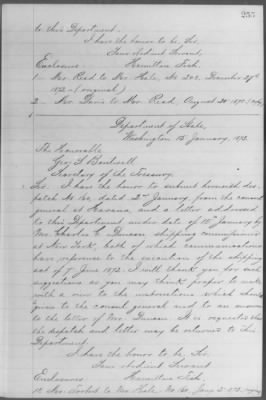 to this Department.
I have the honor to be, Sir,
Your obedient Servant,
Enclosures Hamilton Fish.
1. Mr. Read to Mr. Hale, No. December 27th
1872 (original)
2. Mr. Davis to Mr. Read, August
Department of State,
Washington 15 January, 1873.
The Honorable
Geo. S. Boutwell
Secretary of the Treasury.
Sir. I have the honor to submit herewith des-
patch No. 60, dated 2nd January, from the consul
general at Havana and a letter addressed
to this Department under date of 10th January by
Mr. Charles C. Duncan shipping commissioner
at New York, both of which communications
have reference to the execution of the shipping
act of 7 June 1872. I will thank you for such
suggestions as you may think proper to make
with a view to the instructions which should be
given to the consul general and to an answer
to the letter of Mr. Duncan. It is requested that
the despatch and letter may be returned to this
Department.
I have the honor to be, Sir,
Your obedient Servant
Enclosures Hamilton Fish.
1. Mr. Torbert to Mr. Hale, No. 60, Jany 2